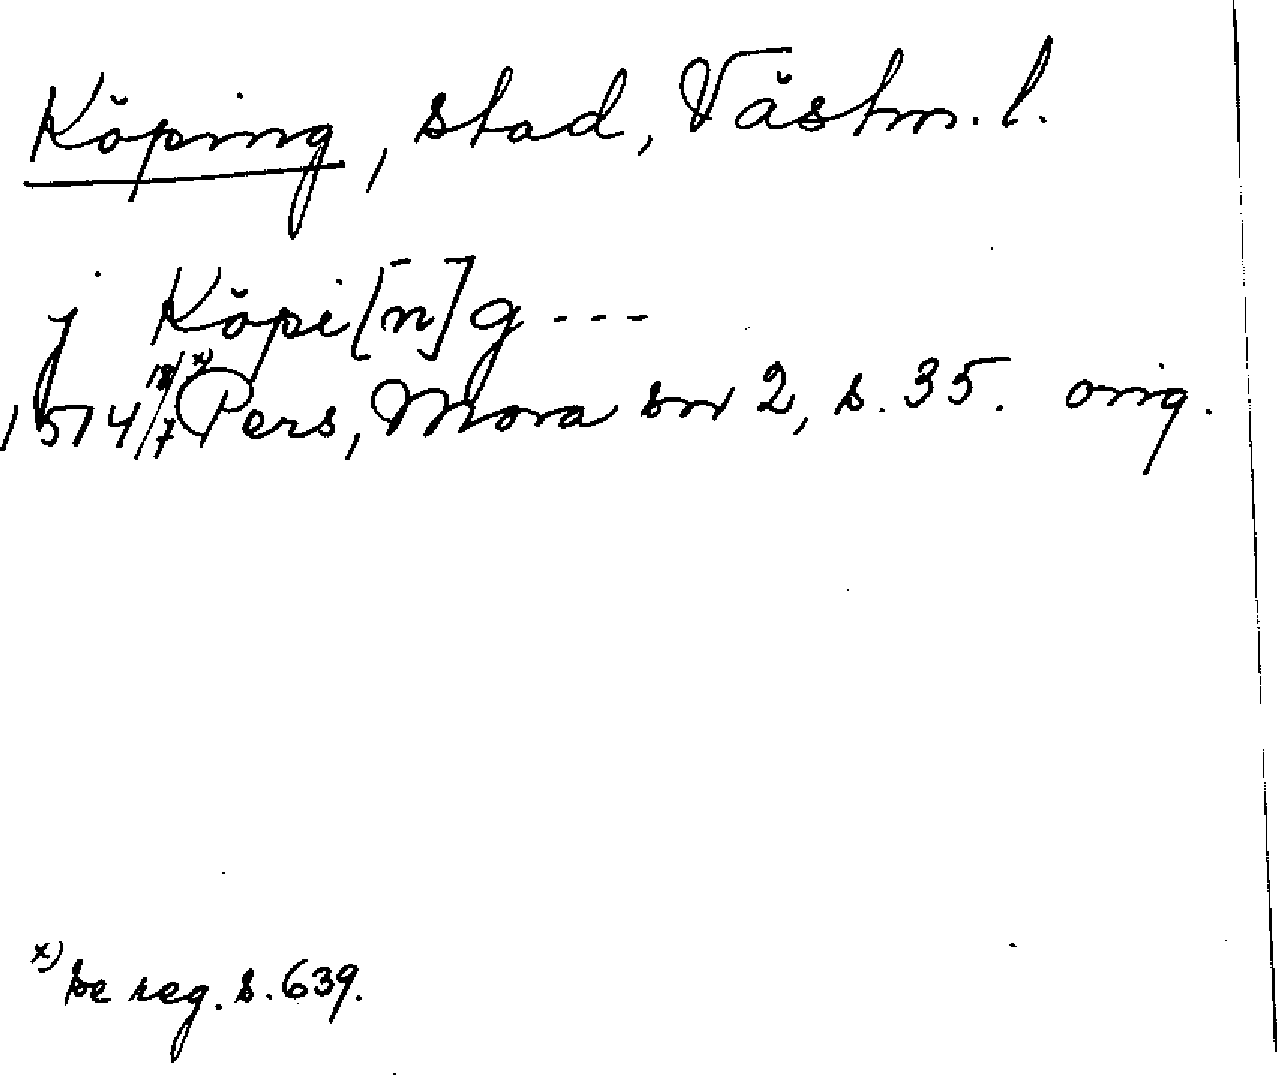 Köping, stad, Västm. l.
j Köpi[n]g ---
1514 /7 x) Pers, Mora sn 2, s. 35. orig.
x) se reg. s. 639.